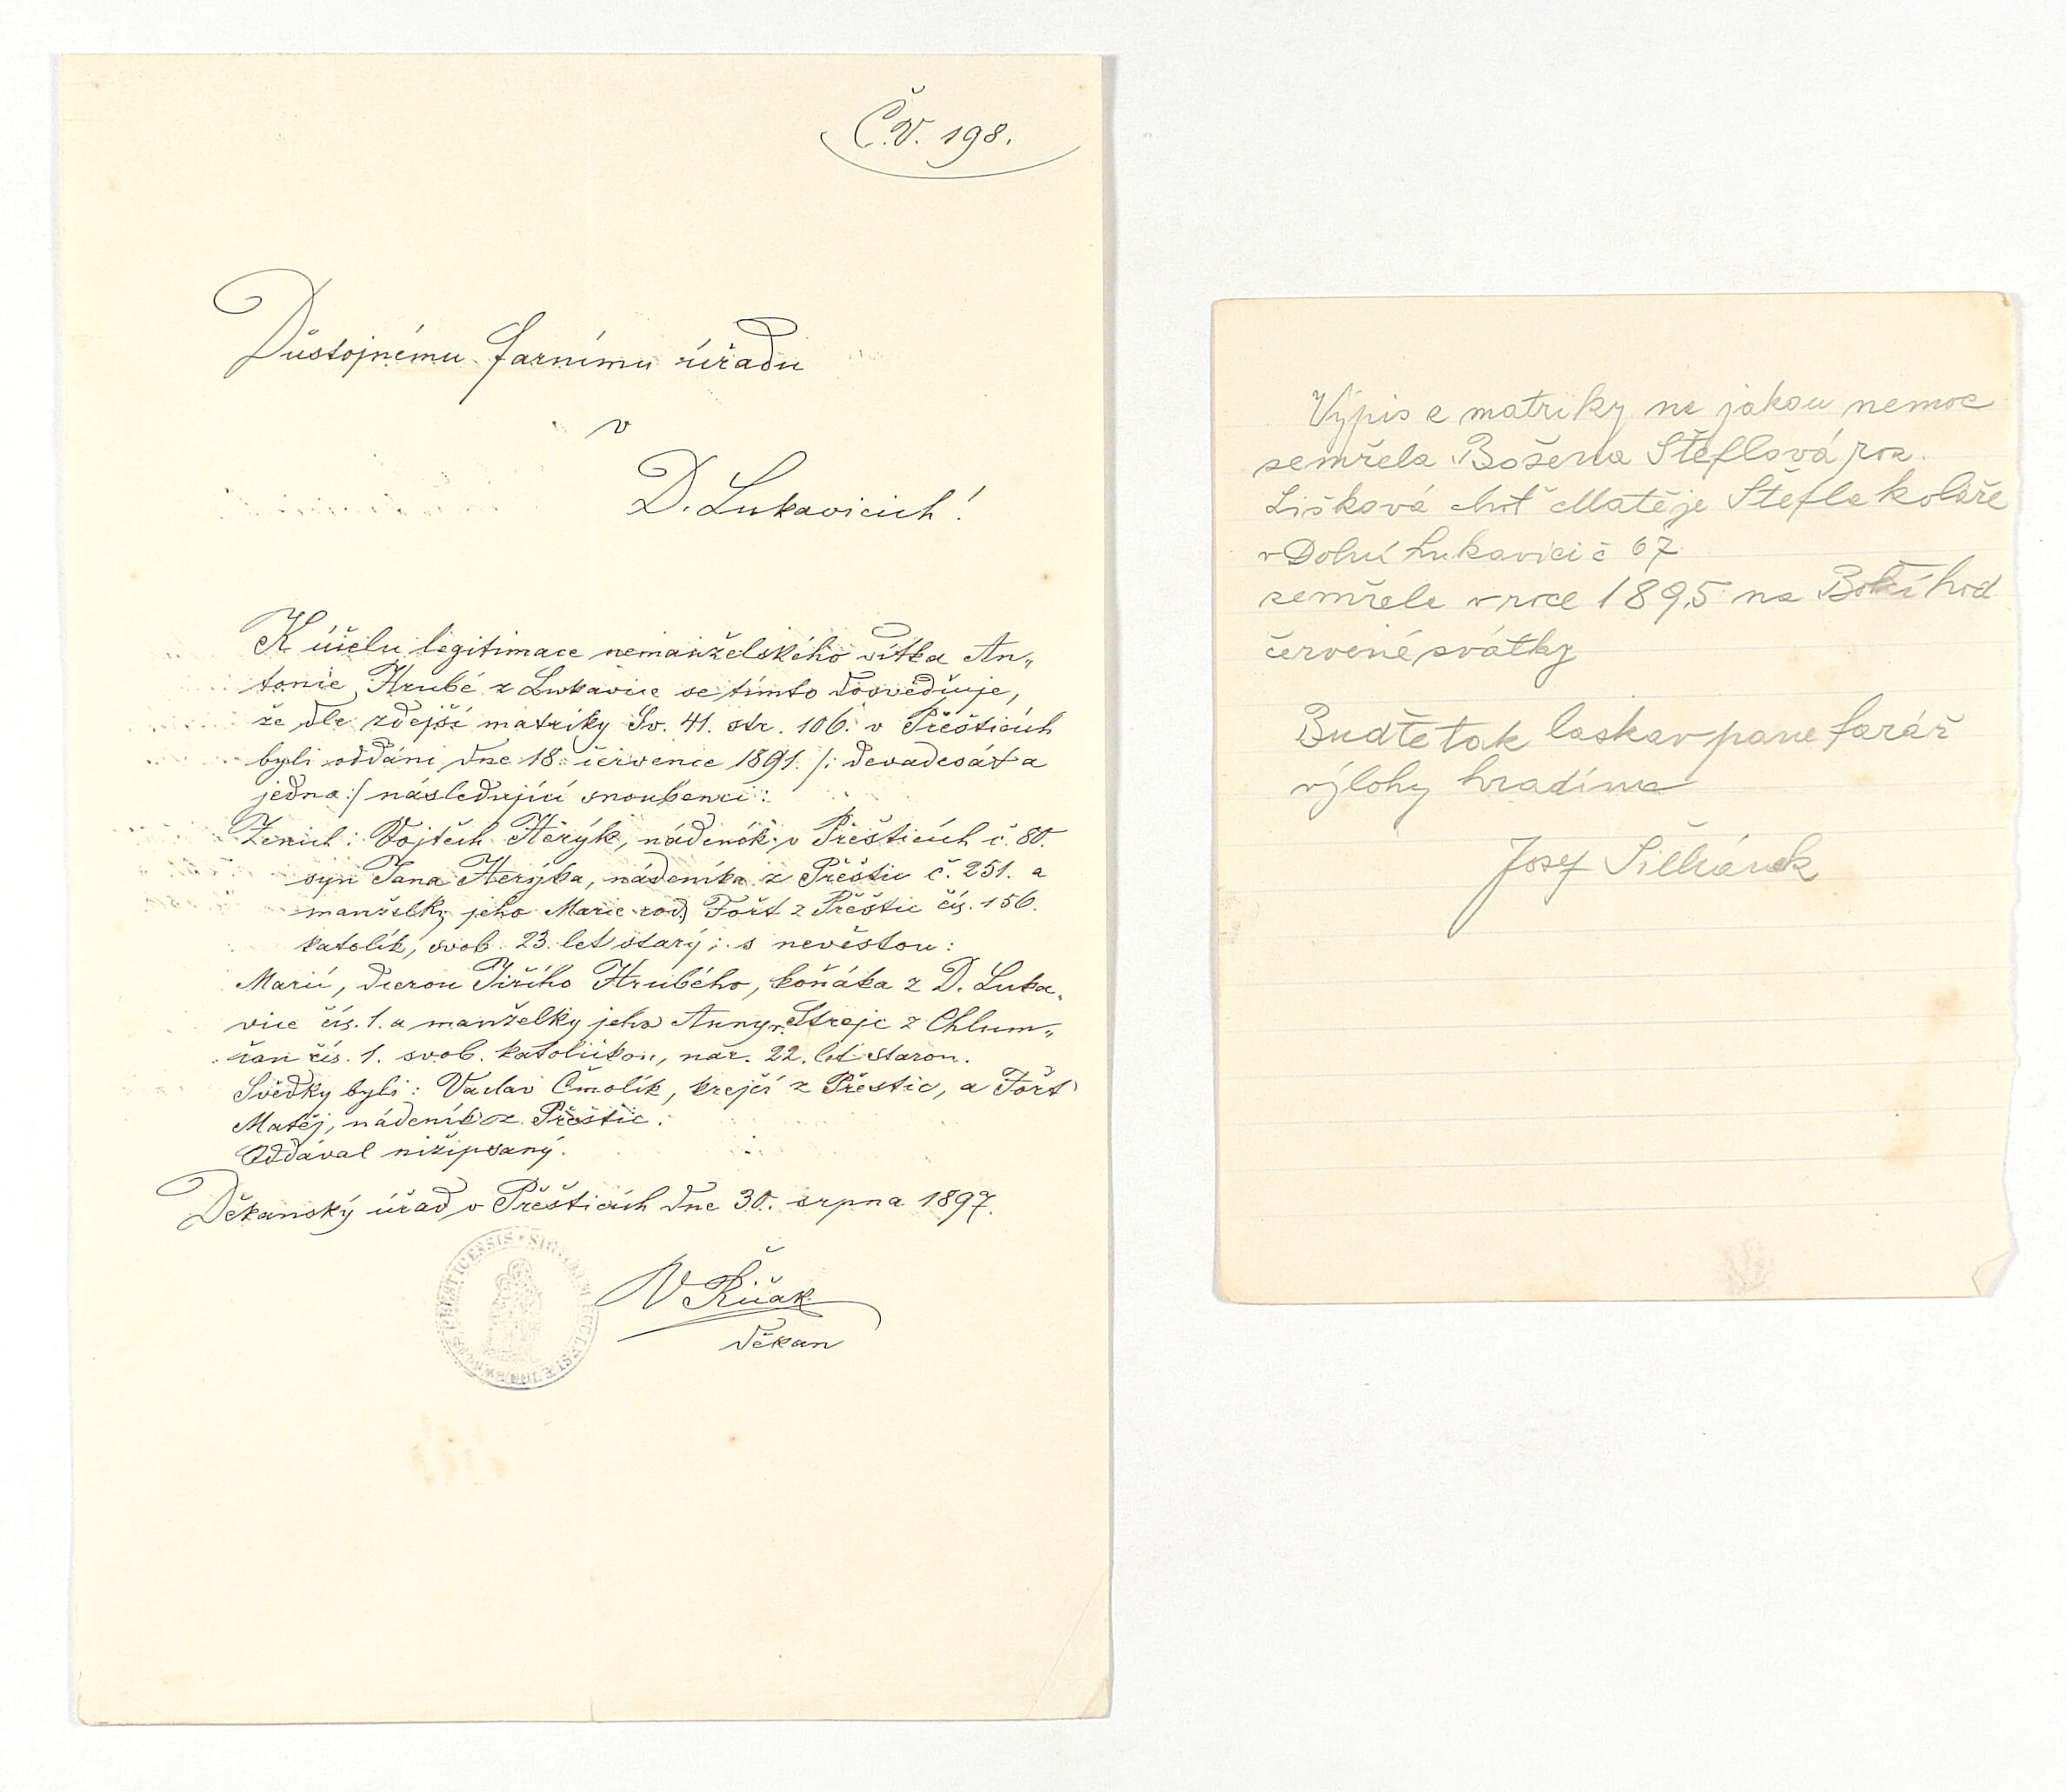 Č.V. 198.
Důstojnému farnímu úřadu
v
D. Lukavicích!
K účelu legitimace nemanželského dítka An„
tonie Hrubé z Lukavice se tímto dosvědčuje,
že dle zdejší matriky Sv. 41. str. 106. v Přešticích
byli oddáni dne 18. července 1891. /: devadesát a
jedna :/ následující snoubenci:
Ženich: Vojtěch Herýk, nádeník v Přešticích č. 80.
syn Jana Herýka, nádeníka z Přeštic č. 251. a
manželky jeho Marie rod. Fořt z Přeštic čís. 156.
katolík, svob. 23. let starý; s nevěstou:
Marií, dcerou Jiřího Hrubého, koňáka z D. Luka„
vice čís. 1. a manželky jeho Anny r. Strejc z Chlum„
čan čís. 1. svob. katoličkou, nar. 22. let starou.
Svědky byli: Václav Čmolík, krejčí z Přeštic, a Fořt
Matěj, nádeník z Přeštic.
Oddával nížepsaný.
Děkanský úřad v Přešticích dne 30. srpna 1897.
V Říčák
děkan
Výpis z matriky na jakou nemoc
zemřela Božena Štěflová roz.
Lišková choť Matěje Štefle koláře
v Dolní Lukavici č 67
zemřela v roce 1895 na Boží hod
červené svátky
Buďte tak laskav pane farář
výlohy hradíme
Josef